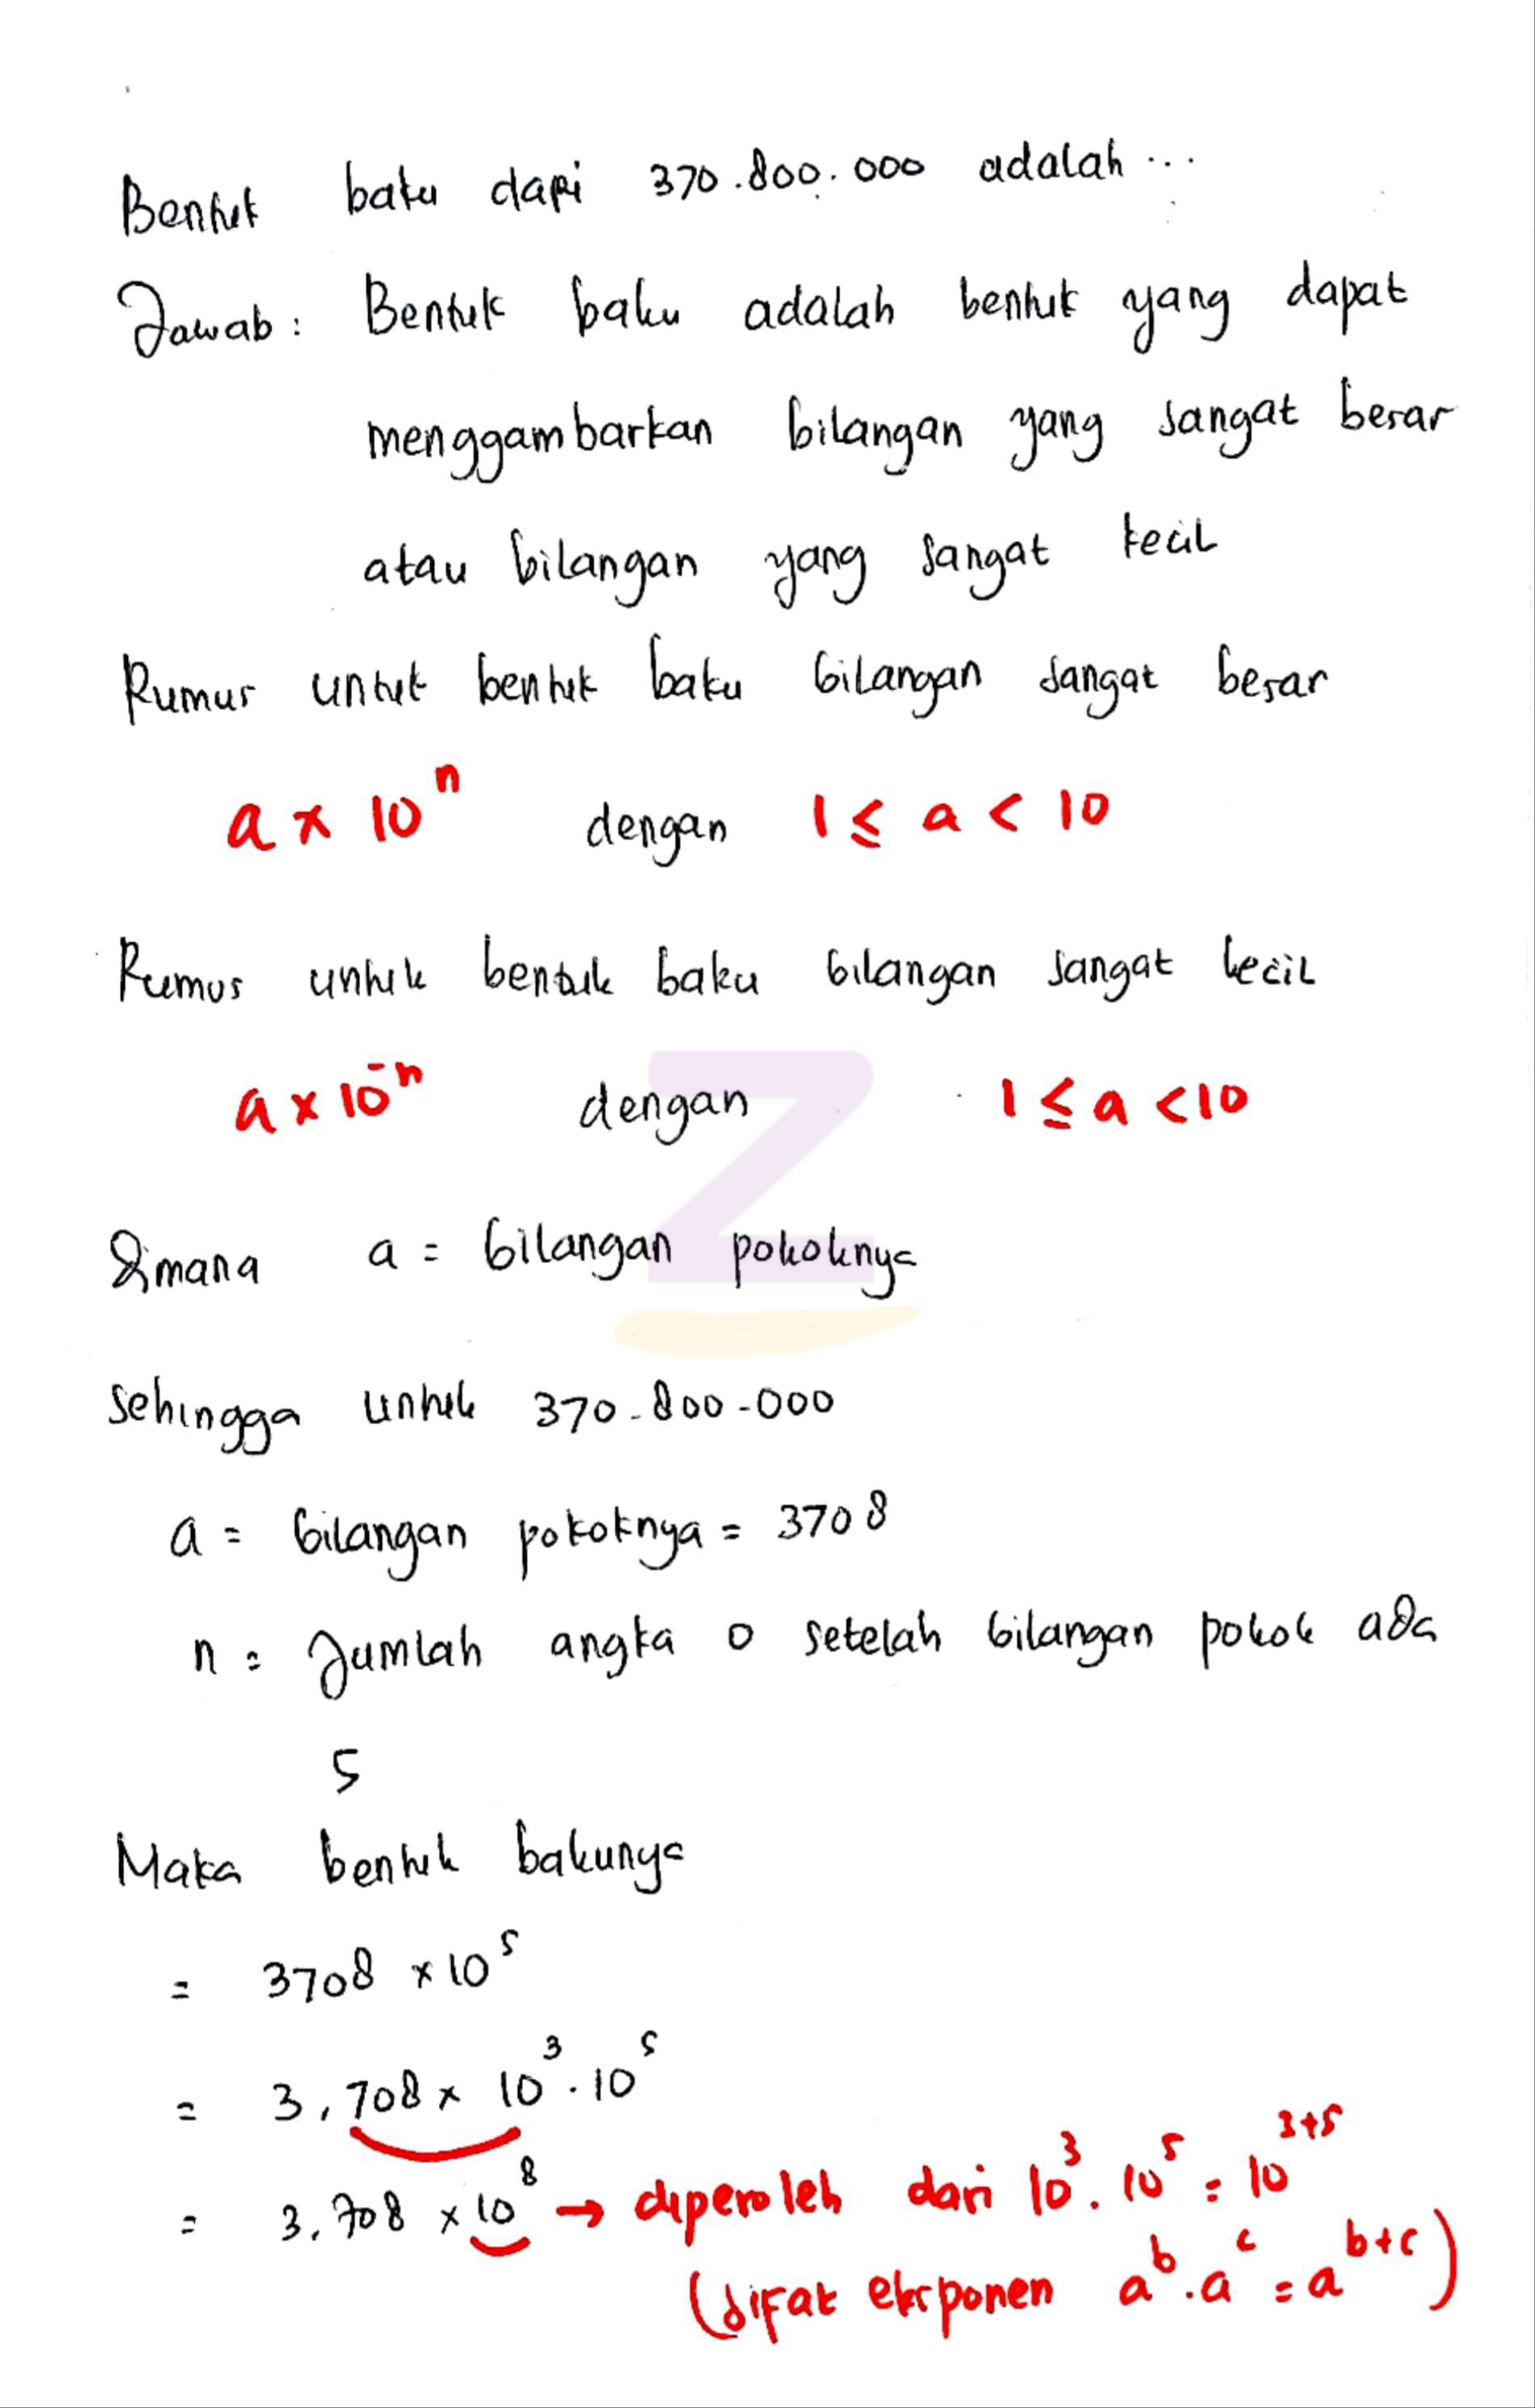 Bentuk baku dari 370.800.000 adalah ...
Jawab : Bentuk baku adalah bentuk yang dapat
menggambarkan bilangan yang sangat besar
atau bilangan yang sangat kecil
Rumus untuk bentuk baku bilangan sangat besar
a x 10ⁿ dengan 1 ≤ a < 10
Rumus untuk bentuk baku bilangan sangat kecil
a x 10⁻ⁿ dengan 1 ≤ a < 10
Dimana a = bilangan pokoknya
Sehingga untuk 370.800.000
a = bilangan pokoknya = 3708
n = Jumlah angka 0 setelah bilangan pokok ada
5
Maka bentuk bakunya
= 3708 x 10⁵
= 3,708 x 10³ . 10⁵
= 3,708 x 10⁸ → diperoleh dari 10³ . 10⁵ = 10³⁺⁵
(sifat eksponen aᵇ . aᶜ = aᵇ⁺ᶜ)